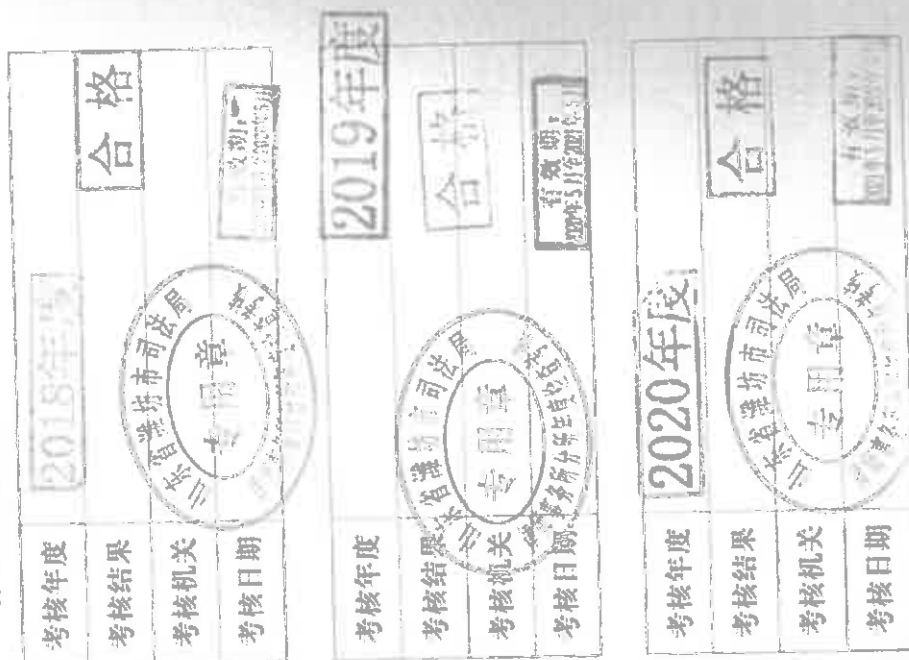 考核年度
2018年度
考核结果
合格
考核机关
山东省潍坊市司法局
专用章
考核日期
考核年度
2019年度
考核结果
合格
考核机关
山东省潍坊市司法局
专用章
考核日期
有效期：
考核年度
2020年度
考核结果
合格
考核机关
山东省潍坊市司法局
专用章
考核日期